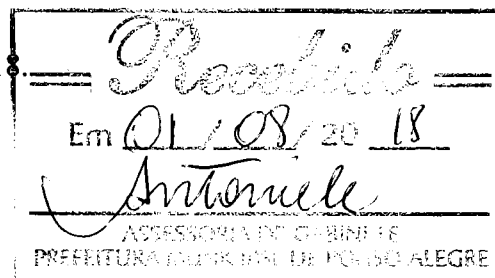 Recebido
Em 01 / 08 / 20 18
Antoniele
ASSESSORIA DO GABINETE
PREFEITURA MUNICIPAL DE POUSO ALEGRE